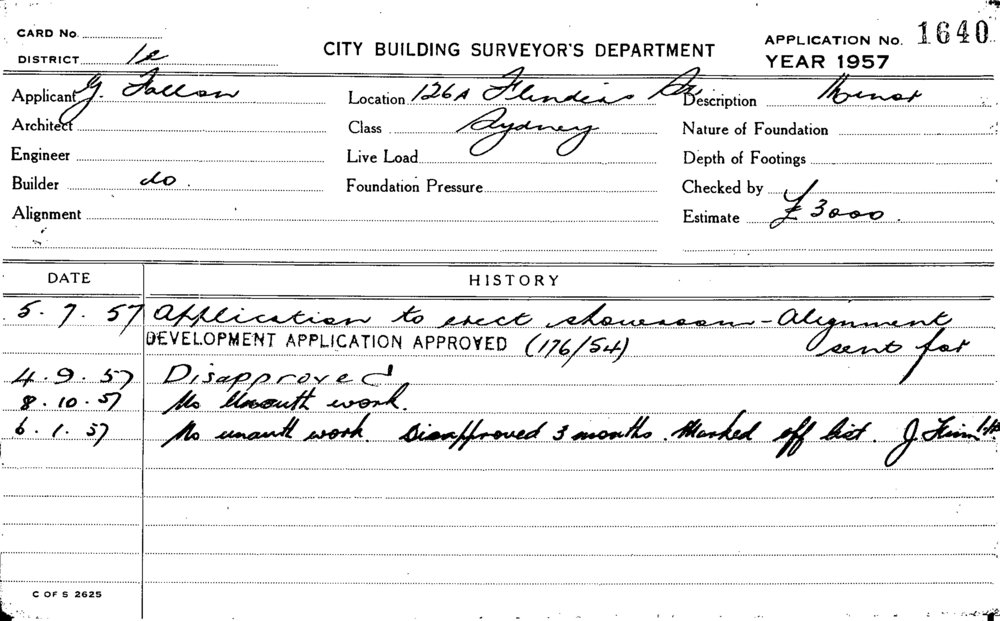 CARD No.
DISTRICT 1c
CITY BUILDING SURVEYOR'S DEPARTMENT
APPLICATION No. 1640
YEAR 1957
Applicant G. Fallon
Location 126A Flinders St
Description Minor
Architect
Class Sydney
Nature of Foundation
Engineer
Live Load
Depth of Footings
Builder do.
Foundation Pressure
Checked by
Alignment
Estimate £3000.
DATE HISTORY
5. 7. 57 Application to erect showroom - Alignment
DEVELOPMENT APPLICATION APPROVED (176/54) sent for
4. 9. 57 Disapproved
8. 10. 57 No Unauth work.
6. 1. 57 No unauth work. Disapproved 3 months. Marked off list. J.
C OF S 2625